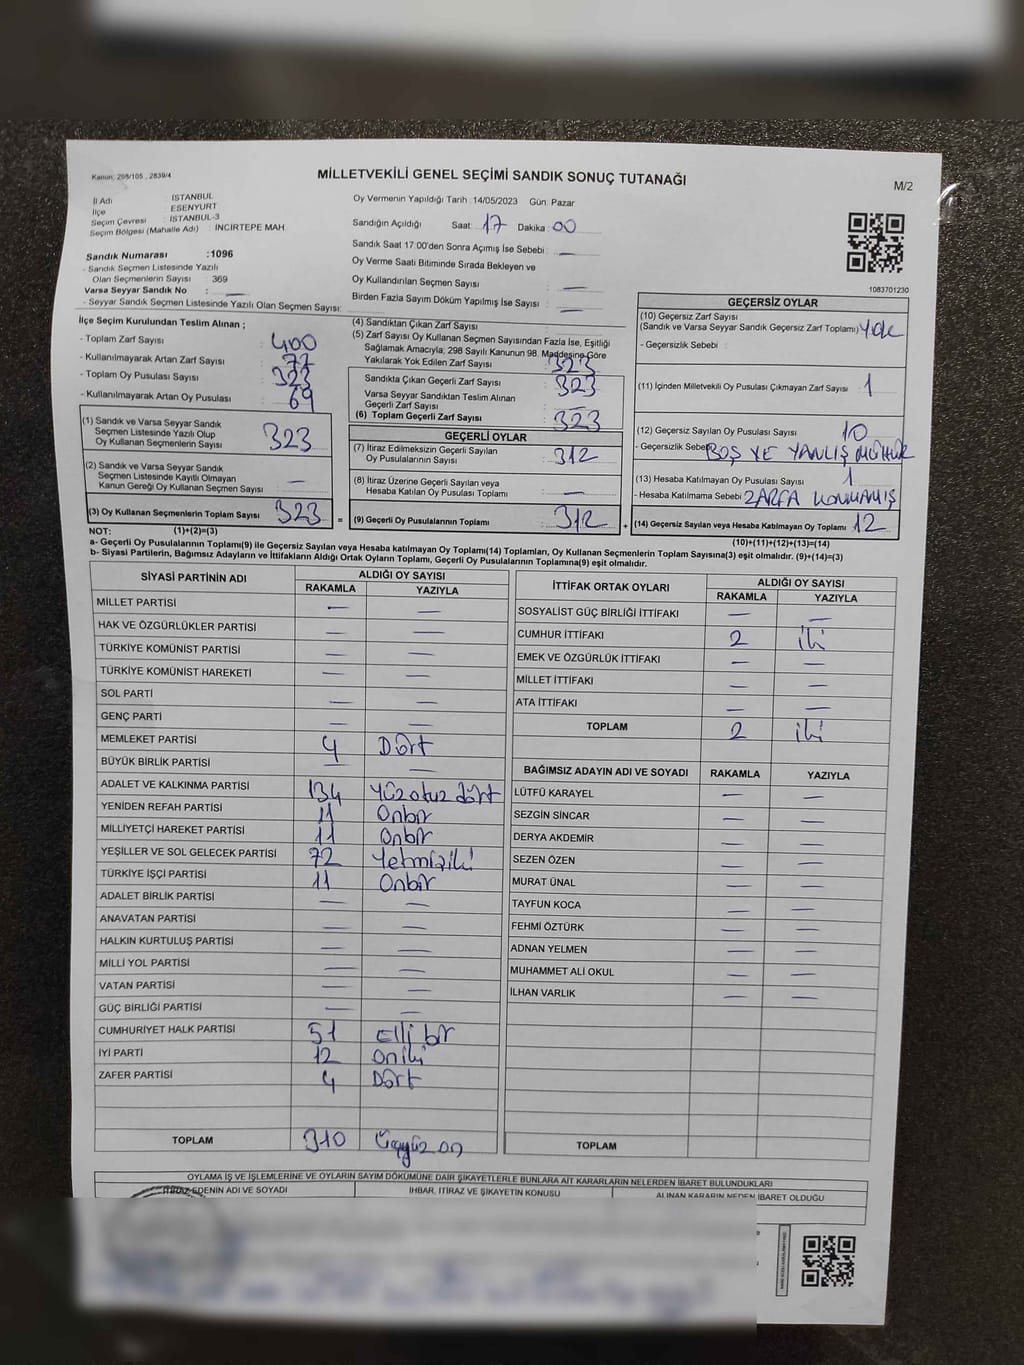 Kanun: 298/105 , 2839/4
MİLLETVEKİLİ GENEL SEÇİMİ SANDIK SONUÇ TUTANAĞI
M/2
İl Adı : İSTANBUL
İlçe : ESENYURT
Seçim Çevresi : İSTANBUL-3
Seçim Bölgesi (Mahalle Adı) : İNCİRTEPE MAH
Sandık Numarası :1096
- Sandık Seçmen Listesinde Yazılı
Olan Seçmenlerin Sayısı : 369
Varsa Seyyar Sandık No : —
- Seyyar Sandık Seçmen Listesinde Yazılı Olan Seçmen Sayısı: —
Oy Vermenin Yapıldığı Tarih :14/05/2023 Gün: Pazar
Sandığın Açıldığı Saat: 17 Dakika: 00
Sandık Saat 17:00'den Sonra Açımış İse Sebebi : —
Oy Verme Saati Bitiminde Sırada Bekleyen ve
Oy Kullandırılan Seçmen Sayısı : —
Birden Fazla Sayım Döküm Yapılmış İse Sayısı : —
1083701230
İlçe Seçim Kurulundan Teslim Alınan ;
- Toplam Zarf Sayısı : 400
- Kullanılmayarak Artan Zarf Sayısı : 77
- Toplam Oy Pusulası Sayısı : 323
- Kullanılmayarak Artan Oy Pusulası : 69
(1) Sandık ve Varsa Seyyar Sandık
Seçmen Listesinde Yazılı Olup
Oy Kullanan Seçmenlerin Sayısı : 323
(2) Sandık ve Varsa Seyyar Sandık
Seçmen Listesinde Kayıtlı Olmayan
Kanun Gereği Oy Kullanan Seçmen Sayısı : —
(3) Oy Kullanan Seçmenlerin Toplam Sayısı : 323
(4) Sandıktan Çıkan Zarf Sayısı :
(5) Zarf Sayısı Oy Kullanan Seçmen Sayısından Fazla İse, Eşitliği
Sağlamak Amacıyla; 298 Sayılı Kanunun 98. Maddesine Göre
Yakılarak Yok Edilen Zarf Sayısı : 323
Sandıkta Çıkan Geçerli Zarf Sayısı : 323
Varsa Seyyar Sandıktan Teslim Alınan
Geçerli Zarf Sayısı : —
(6) Toplam Geçerli Zarf Sayısı : 323
GEÇERLİ OYLAR
(7) İtiraz Edilmeksizin Geçerli Sayılan
Oy Pusulalarının Sayısı : 312
(8) İtiraz Üzerine Geçerli Sayılan veya
Hesaba Katılan Oy Pusulası Toplamı : —
= (9) Geçerli Oy Pusulalarının Toplamı : 312
GEÇERSİZ OYLAR
(10) Geçersiz Zarf Sayısı
(Sandık ve Varsa Seyyar Sandık Geçersiz Zarf Toplamı) : Yok
- Geçersizlik Sebebi :
(11) İçinden Milletvekili Oy Pusulası Çıkmayan Zarf Sayısı : 1
(12) Geçersiz Sayılan Oy Pusulası Sayısı : 10
- Geçersizlik Sebebi BOŞ VE YANLIŞ MÜHÜR
(13) Hesaba Katılmayan Oy Pusulası Sayısı : 1
- Hesaba Katılmama Sebebi : ZARFA KONMAMIŞ
+ (14) Geçersiz Sayılan veya Hesaba Katılmayan Oy Toplamı : 12
NOT: (1)+(2)=(3) (10)+(11)+(12)+(13)=(14)
a- Geçerli Oy Pusulalarının Toplamı(9) ile Geçersiz Sayılan veya Hesaba katılmayan Oy Toplamı(14) Toplamları, Oy Kullanan Seçmenlerin Toplam Sayısına(3) eşit olmalıdır. (9)+(14)=(3)
b- Siyasi Partilerin, Bağımsız Adayların ve İttifakların Aldığı Ortak Oyların Toplamı, Geçerli Oy Pusulalarının Toplamına(9) eşit olmalıdır.
SİYASİ PARTİNİN ADI ALDIĞI OY SAYISI
RAKAMLA YAZIYLA
MİLLET PARTİSİ — —
HAK VE ÖZGÜRLÜKLER PARTİSİ — —
TÜRKİYE KOMÜNİST PARTİSİ — —
TÜRKİYE KOMÜNİST HAREKETİ — —
SOL PARTİ — —
GENÇ PARTİ — —
MEMLEKET PARTİSİ 4 Dört
BÜYÜK BİRLİK PARTİSİ — —
ADALET VE KALKINMA PARTİSİ 134 Yüz otuz dört
YENİDEN REFAH PARTİSİ 11 Onbir
MİLLİYETÇİ HAREKET PARTİSİ 11 Onbir
YEŞİLLER VE SOL GELECEK PARTİSİ 72 Yetmişiki
TÜRKİYE İŞÇİ PARTİSİ 11 Onbir
ADALET BİRLİK PARTİSİ — —
ANAVATAN PARTİSİ — —
HALKIN KURTULUŞ PARTİSİ — —
MİLLİ YOL PARTİSİ — —
VATAN PARTİSİ — —
GÜÇ BİRLİĞİ PARTİSİ — —
CUMHURİYET HALK PARTİSİ 51 Elli bir
İYİ PARTİ 12 Oniki
ZAFER PARTİSİ 4 Dört
TOPLAM 310 Üçyüz on
İTTİFAK ORTAK OYLARI ALDIĞI OY SAYISI
RAKAMLA YAZIYLA
SOSYALİST GÜÇ BİRLİĞİ İTTİFAKI — —
CUMHUR İTTİFAKI 2 iki
EMEK VE ÖZGÜRLÜK İTTİFAKI — —
MİLLET İTTİFAKI — —
ATA İTTİFAKI — —
TOPLAM 2 iki
BAĞIMSIZ ADAYIN ADI VE SOYADI RAKAMLA YAZIYLA
LÜTFÜ KARAYEL — —
SEZGİN SİNCAR — —
DERYA AKDEMİR — —
SEZEN ÖZEN — —
MURAT ÜNAL — —
TAYFUN KOCA — —
FEHMİ ÖZTÜRK — —
ADNAN YELMEN — —
MUHAMMET ALİ OKUL — —
İLHAN VARLIK — —
TOPLAM
OYLAMA İŞ VE İŞLEMLERİNE VE OYLARIN SAYIM DÖKÜMÜNE DAİR ŞİKAYETLERLE BUNLARA AİT KARARLARIN NELERDEN İBARET BULUNDUKLARI
İTİRAZ EDENİN ADI VE SOYADI İHBAR, İTİRAZ VE ŞİKAYETİN KONUSU ALINAN KARARIN NEDEN İBARET OLDUĞU